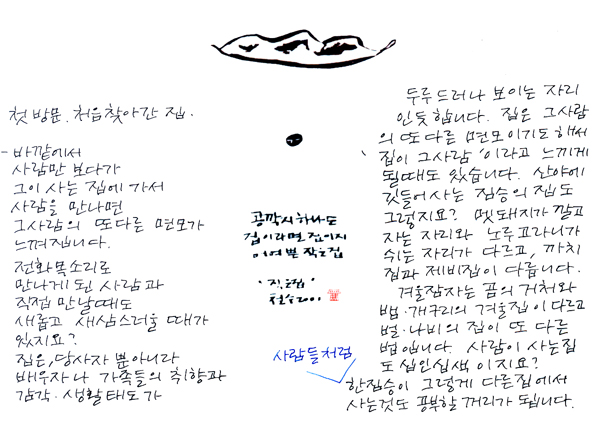 첫 방문. 처음 찾아간 집.
- 바깥에서
사람만 보다가
그이 사는 집에 가서
사람을 만나면
그사람의 또다른 면모가
느껴집니다.
전화목소리로
만나게 된 사람과
직접 만날때도
새롭고 새삼스러울 때가
있지요?
집은, 당사자 뿐아니라
배우자나 가족들의 취향과
감각·생활태도가
콩깍지 하나도
집이라면 집이지
어여쁜 작은집
·작은집·
철수 2001
두루 드러나 보이는 자리
인듯 합니다. 집은 그사람
의 또 다른 면모이기도 해서
집이 그사람 '이라고 느끼게
될때도 있습니다. 산야에
깃들어 사는 짐승의 집도
그렇지요? 멧돼지가 깔고
자는 자리와 노루 고라니가
쉬는 자리가 다르고, 까치
집과 제비집이 다릅니다.
겨울잠자는 곰의 거처와
뱀·개구리의 겨울집이 다르고
벌·나비의 집이 또 다른
법입니다. 사람이 사는집
도 십인십색 이지요?
사람들처럼
한짐승이 그렇게 다른집에서
사는것도 공부할 꺼리가 됩니다.